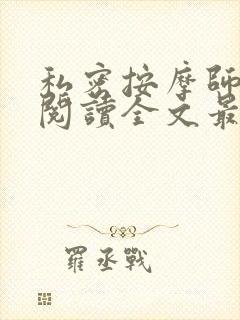 私密按摩師
閱讀全文最
羅丞戰